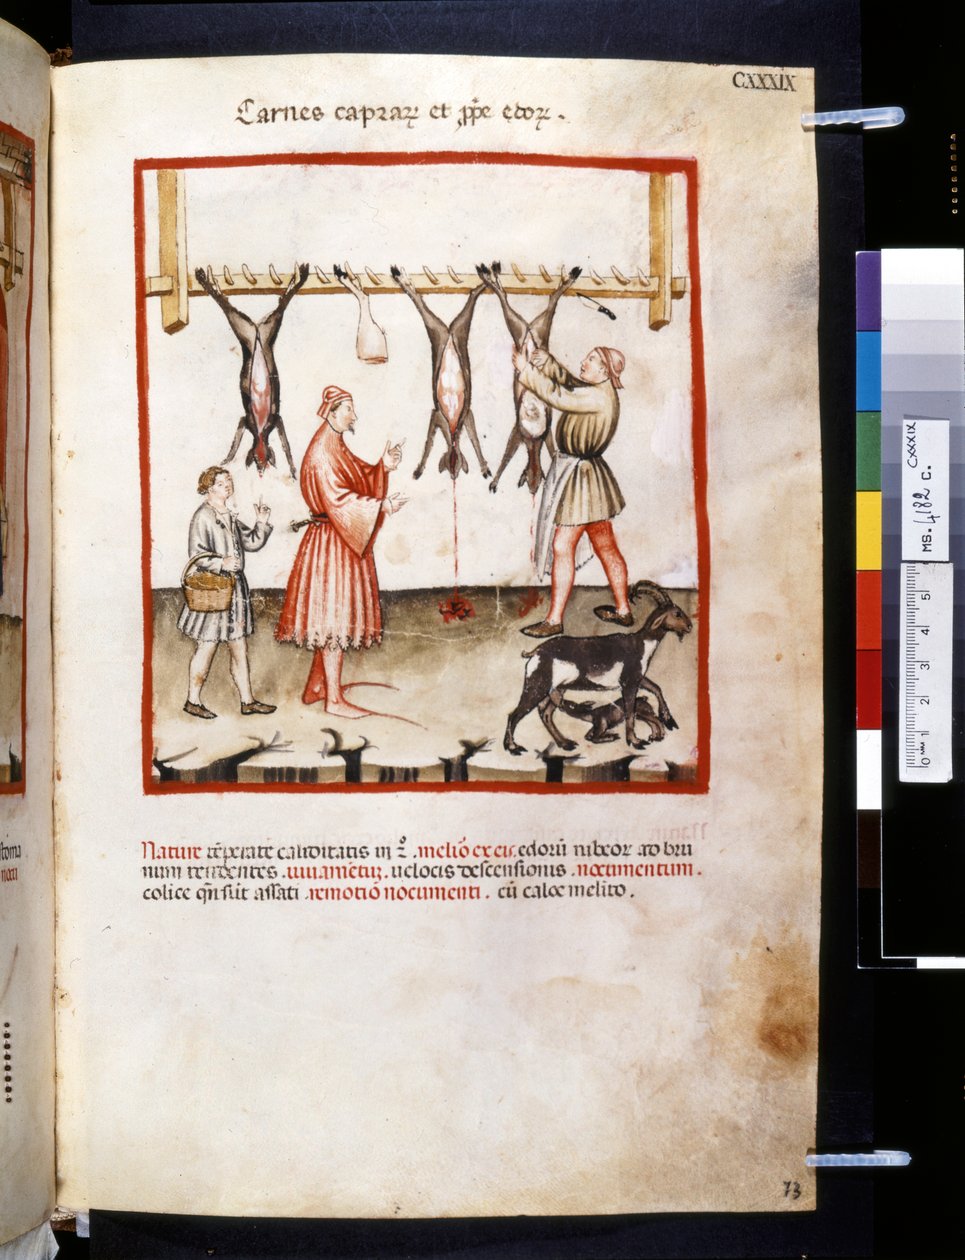 CXXXIX
Carnes capraꝝ et ꝓp̄e edoꝝ.
Nature tēperate caliditatis in 2°. melio᷑ ex eis. edorū rubeor. ad bru
num tendentes. iuuamētuꝫ. uelocis descensionis. nocumentum.
colice qn̄ sūt assati. remotio nocumenti. cū calce melito.
73
stoma
nocu
MS. 4182 C. CXXXIX
0 MM 1 2 3 4 5